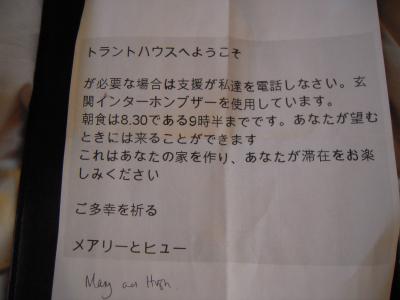 トラントハウスへようこそ
が必要な場合は支援が私達を電話しなさい。玄
関インターホンブザーを使用しています。
朝食は8.30である9時半までです。あなたが望む
ときには来ることができます
これはあなたの家を作り、あなたが滞在をお楽
しみください
ご多幸を祈る
メアリーとヒュー
Mary and Hugh.